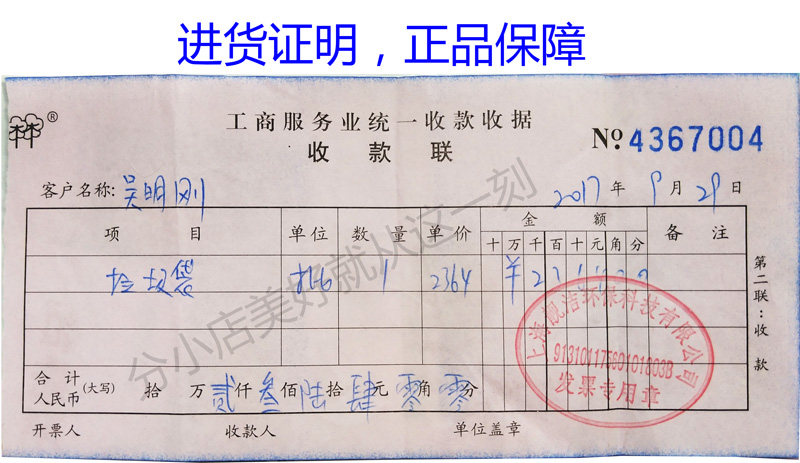 进货证明，正品保障
工商服务业统一收款收据
收款联
®
№ 4367004
客户名称: 吴明刚
2017 年 9 月 29 日
项目 单位 数量 单价 金额 备注
十 万 千 百 十 元 角 分
垃圾袋 批 1 2364 ¥
第二联:收款
合计人民币 (大写) 拾 万 贰 仟 叁 佰 陆 拾 肆 元 零 角 零 分
开票人 收款人 单位盖章
上海靓洁环保科技有限公司
发票专用章
分小店美好就从这一刻